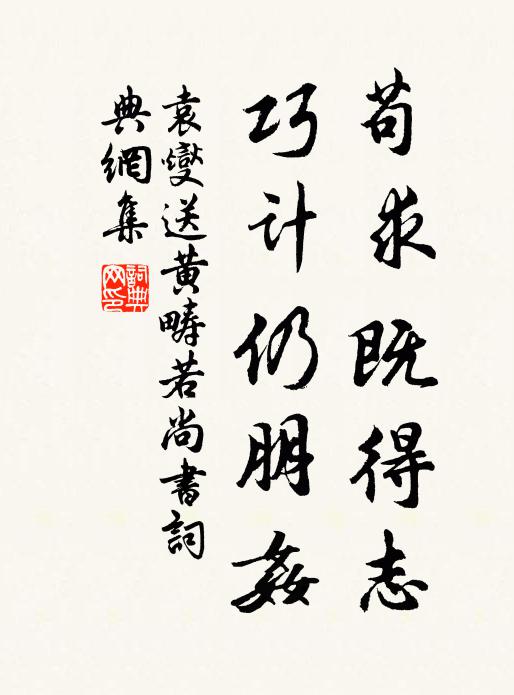 苟求既得志
巧计仍朋姦
袁燮送黄疇若尚書詞
典網集
詞典网印